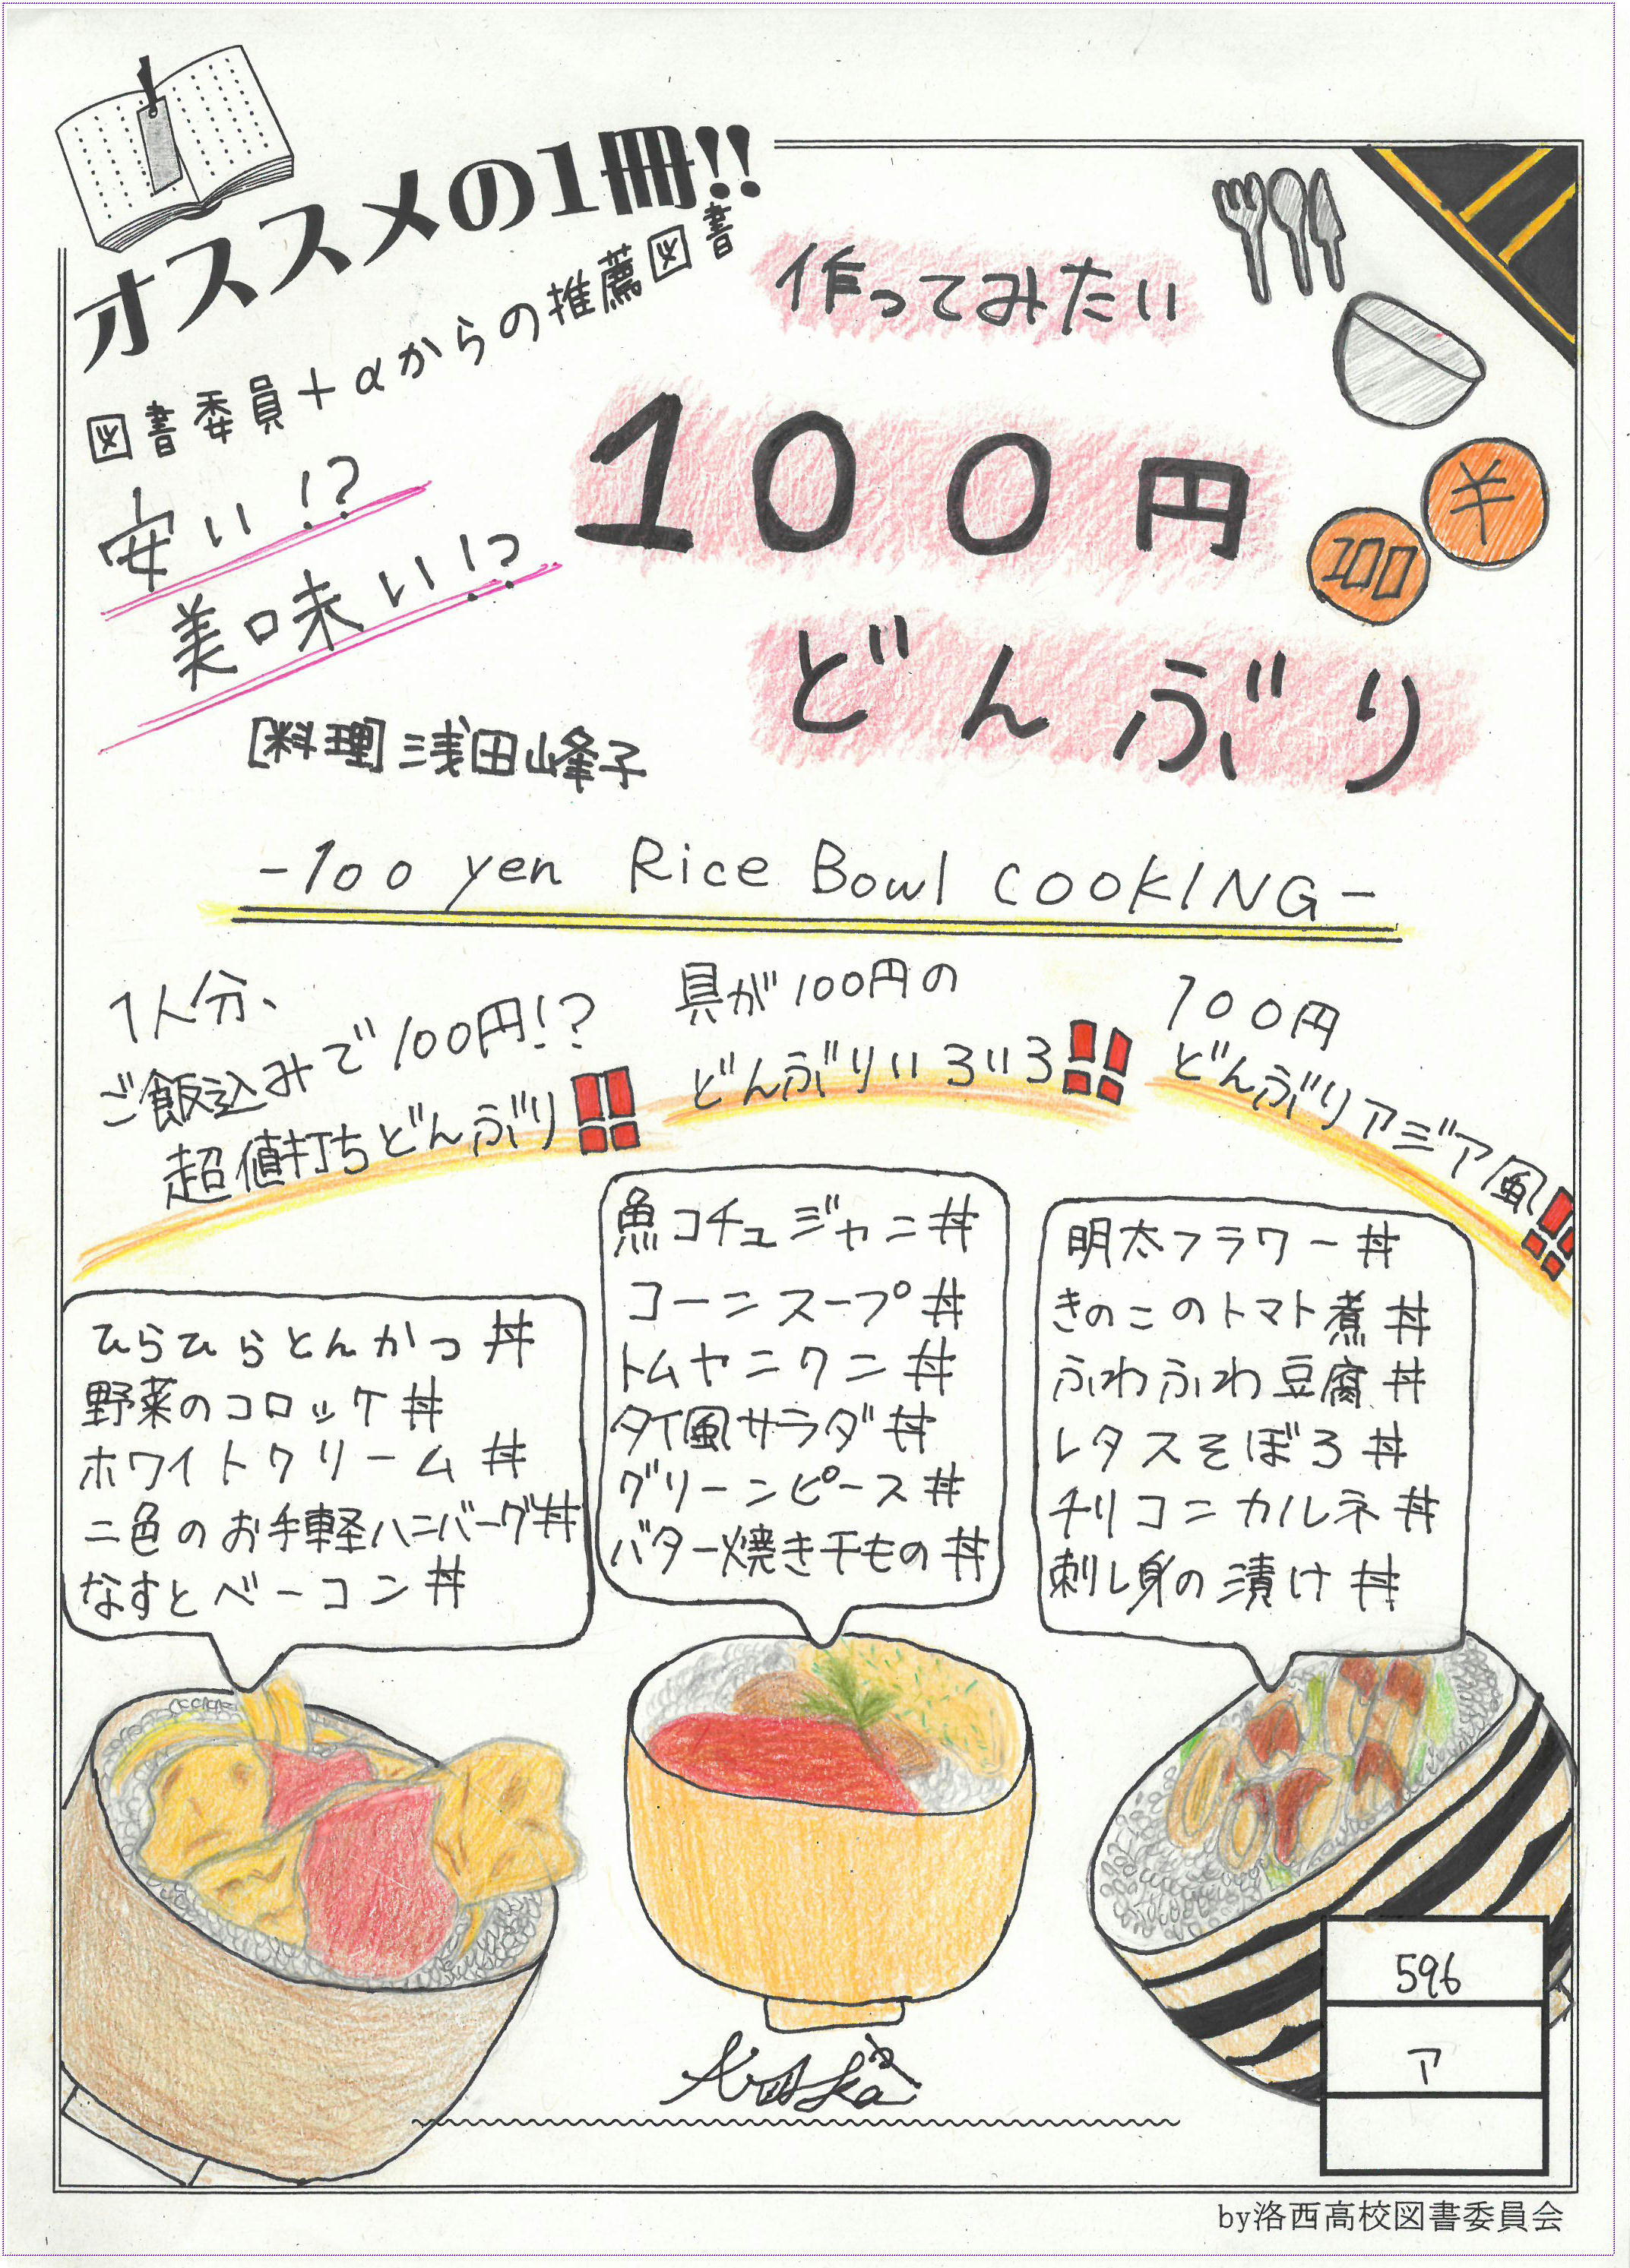 オススメの1冊!!
図書委員+αからの推薦図書
安い!?
美味い!?
作ってみたい
100円
どんぶり
¥
100
[料理]浅田峰子
-100 yen Rice Bowl COOKING-
1人分、
ご飯込みで100円!?
超値打ちどんぶり!!
具が100円の
どんぶりいろいろ!!
100円
どんぶりアジア風!!
ひらひらとんかつ丼
野菜のコロッケ丼
ホワイトクリーム丼
二色のお手軽ハンバーグ丼
なすとベーコン丼
魚コチュジャン丼
コーンスープ丼
トムヤンクン丼
タイ風サラダ丼
グリーンピース丼
バター焼き干もの丼
明太フラワー丼
きのこのトマト煮丼
ふわふわ豆腐丼
レタスそぼろ丼
チリコンカルネ丼
刺し身の漬け丼
596
ア
by洛西高校図書委員会